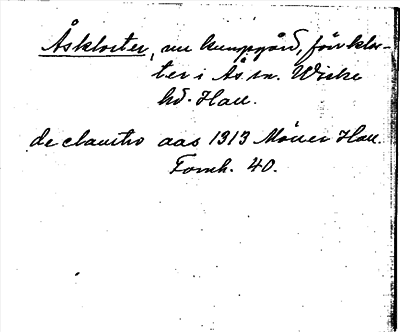 Åskloster, nu kungsgård, förr klos-
ter i Ås sn. Wiske
hd. Hall.
de claustro aas 1313 Möller Hall.
Fornh. 40.